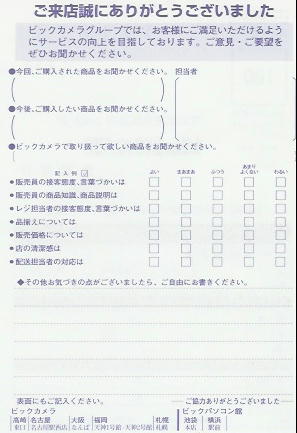 ご来店誠にありがとうございました
ビックカメラグループでは、お客様にご満足いただけるよう
にサービスの向上を目指しております。ご意見・ご要望を
ぜひお聞かせください。
●今回、ご購入された商品をお聞かせください。 担当者
●今後、ご購入したい商品をお聞かせください。
●ビックカメラで取り扱って欲しい商品をお聞かせください。
記入例 よい まあまあ ふつう あまりよくない わるい
●販売員の接客態度、言葉づかいは
●販売員の商品知識、商品説明は
●レジ担当者の接客態度、言葉づかいは
●品揃えについては
●販売価格については
●店の清潔感は
●配送担当者の対応は
◆その他お気づきの点がございましたら、ご自由にお書きください。
表面にもご記入ください。 ご協力ありがとうございました
ビックカメラ ビックパソコン館
高崎 名古屋 大阪 福岡 札幌 池袋 横浜
東口 名古屋駅西店 なんば 天神1号館・天神2号館 札幌 本店 駅前